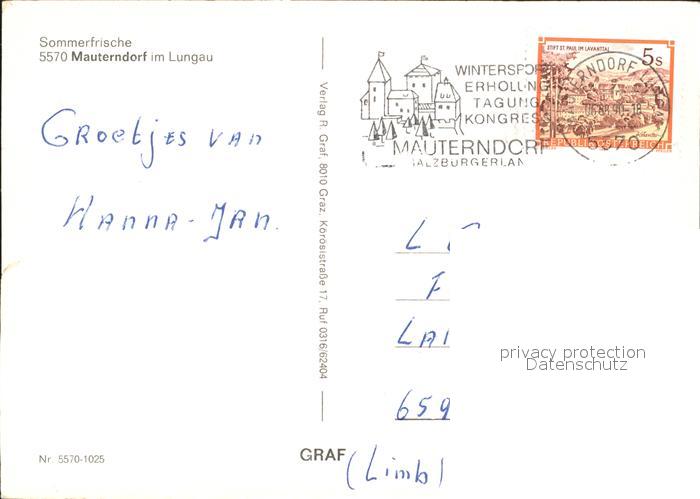 Sommerfrische
5570 Mauterndorf im Lungau
Groetjes van
Hanna-Jan.
Nr. 5570-1025
Verlag R. Graf, 8010 Graz, Körösistraße 17, Ruf 0316/62404
GRAF
WINTERSPOR
ERHOLUNG
TAGUNG
KONGRES
MAUTERNDORF
SALZBURGERLAN
STIFT ST. PAUL IM LAVANTTAL
5s
REPUBLIK ÖSTERREICH
5570
L
F
LAI
659
(Limb)
privacy protection
Datenschutz